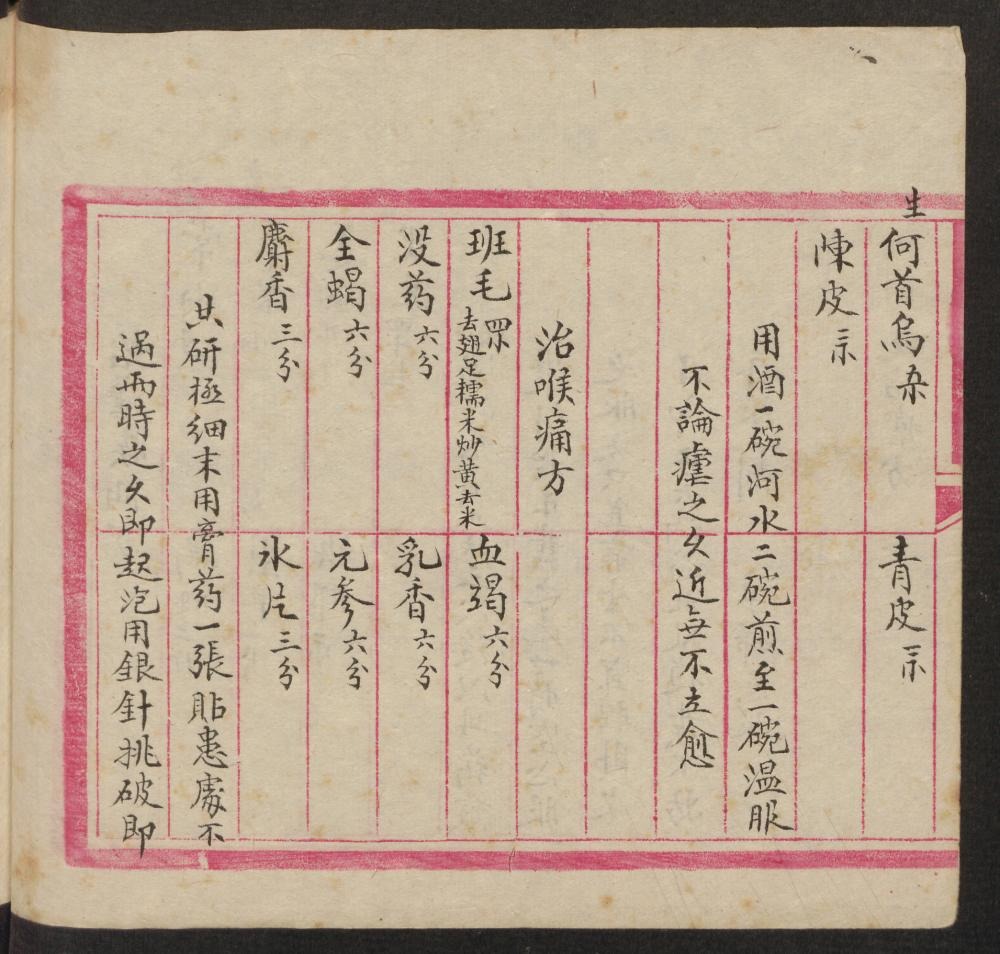 生何首烏 青皮
陳皮
用酒一碗河水二碗煎至一碗温服
不論瘧之久近無不立愈
治喉痛方
班毛去翅足糯米炒黄去米 血竭六分
没药六分 乳香六分
全蝎六分 元參六分
麝香三分 氷片三分
共研極细末用膏药一張貼患處不
過兩時之久即起泡用銀針挑破即